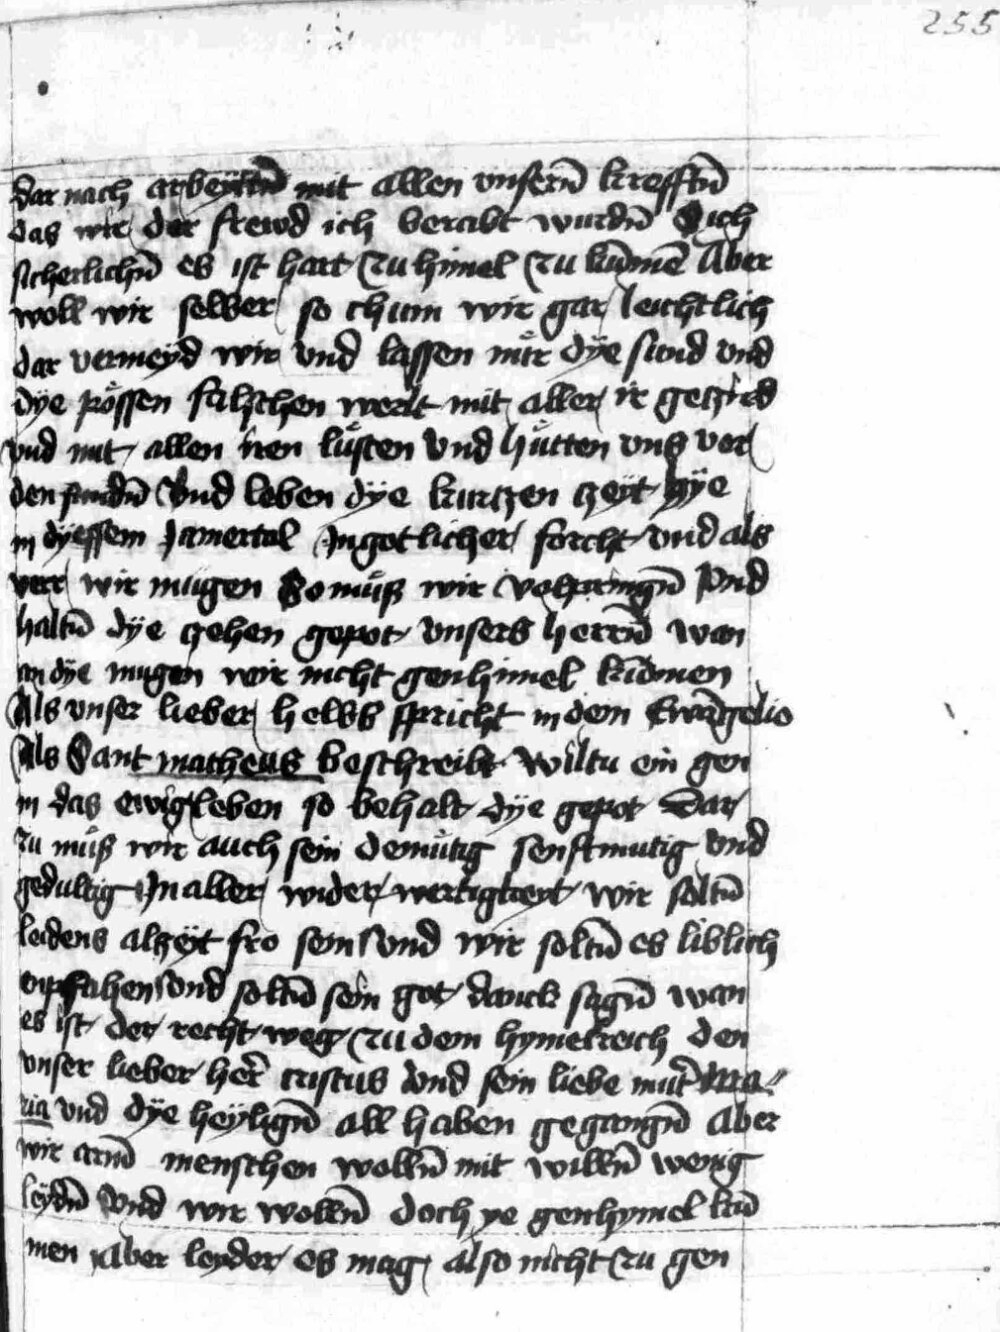 255
dar nach arbeyttn̄ mit allen vnsern̄ krefftn̄
das wir der frewd ich beraibt wurdn̄ Sich
sicherlichn̄ es ist hart zu himel zu kūmen Aber
woll wir selber so chum wir gar leichtlich
dar vermeyd wir vnd lassen nur dÿe sund vnd
dÿe pössen falschen werlt mit aller ir gezird
vnd mit allen iren lüsten vnd hütten vns vor
den sundn̄ Vnd leben dÿe kurtzen zeÿt hÿe
in dÿessem Jamertal In gotlicher forcht vnd als
verr wir mügen So müß wir volpringn̄ vnd
haltn̄ dÿe zehen gepot vnsers herrn̄ wan
an dÿe mugen wir nicht gen himel kūmen
Als vnser lieber spricht in dem Ewāngelio
Als Sant matheus beschreibt Wiltu ein gen
in das ewig leben so behalt dÿe gepot Dar
zu müß wir auch sein demütig senftmutig vnd
gedultig In aller wider wertigkeyt wir soltn̄
leidens alzeÿt fro sein vnd wir soltn̄ es liblich
enpfahen vnd soltn̄ sein got danck sagn̄ wan
es ist der recht weg zu dem hymelreich den
vnser lieber her̄ cristus vnd sein liebe mut̄ Ma-
ria vnd dÿe heÿlign̄ all haben gegangn̄ Aber
wir armn̄ menschen wolln̄ mit willn̄ wenig
leydn̄ vnd wir wolln̄ doch ye gen hymel kū
men Aber leyder es mag also nicht zu gen